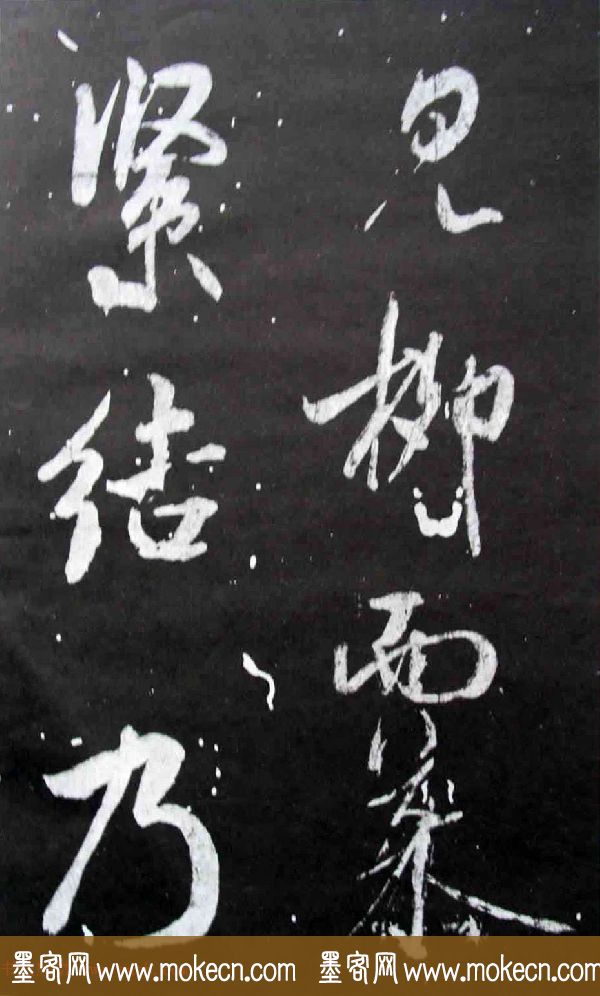 見柳而慕
緊結乃
墨客网 www.mokecn.com 墨客网 www.mokecn.com